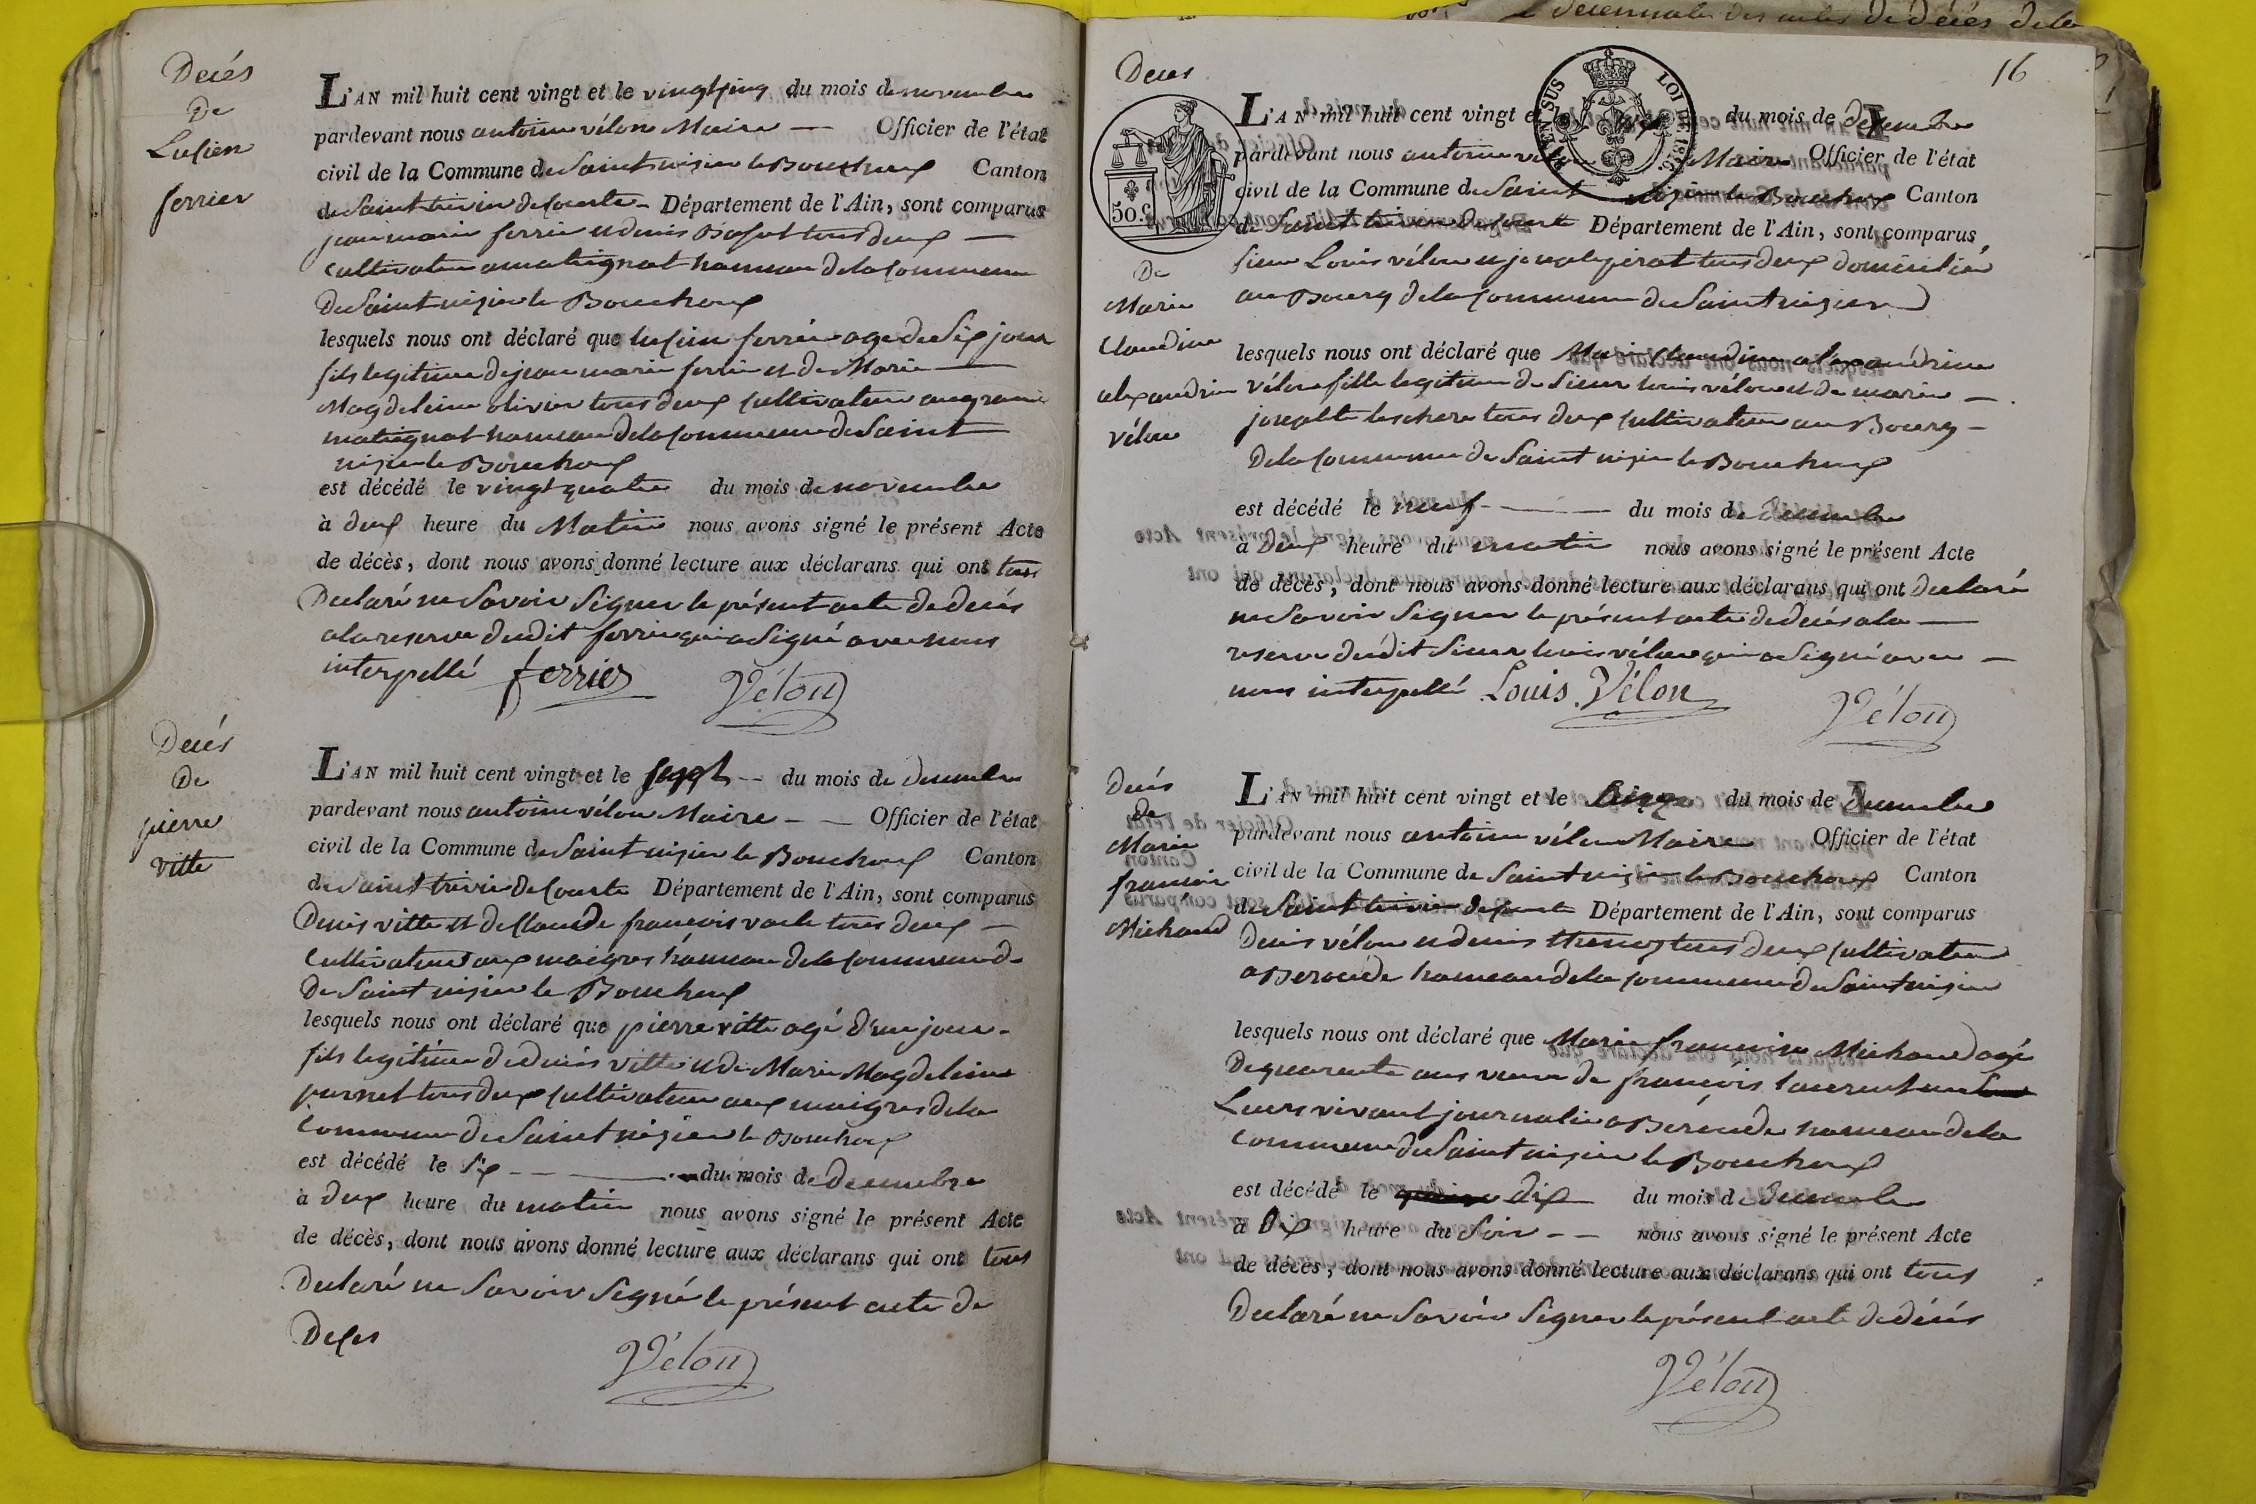 Decés
De
Lucien
ferrier
L'AN mil huit cent vingt et le vingt cinq du mois de novembre
pardevant nous antoine vélon Maire — Officier de l'état
civil de la Commune de Saint nizier le Bouchoux Canton
de Saint trivier de Courte - Département de l'Ain, sont comparus
jean marie ferrier et denis tous deux —
Cultivateur a matrignat hameau de la Commune
De Saint nizier le Bouchoux
lesquels nous ont déclaré que lucien ferrier age de Six jour
fils legitime de jean marie ferrier et de Marie —
Magdeleine olivier tous deux Cultivateur au grand
matrignat hameau de la Commune de Saint
nizier le Bouchoux
est décédé le vingt quatre du mois de novembre
à deux heure du Matin nous avons signé le présent Acte
de décès, dont nous avons donné lecture aux déclarans qui ont tous
Declaré ne Savoir Signer le présent acte de decés
a la reserve dudit ferrier qui a Signé avec nous
interpellé ferrier Vélon
Decés
De
pierre
vitte
L'AN mil huit cent vingt et le sept -- du mois de decembre
pardevant nous antoine vélon Maire - — Officier de l'état
civil de la Commune de Saint nizier le Bouchoux Canton
de Saint trivier de Courte Département de l'Ain, sont comparus
Denis vitte et de Claude françois tous deux —
Cultivateur aux maigres hameau de la Commune de
De Saint nizier le Bouchoux
lesquels nous ont déclaré que pierre vitte agé d'un jour -
fils legitime de denis vitte et de Marie Magdeleine
tous deux Cultivateur aux maigres de la
Commune de Saint nizier le Bouchoux
est décédé le six — — du mois de decembre
à deux heure du matin nous avons signé le présent Acte
de décès, dont nous avons donné lecture aux déclarans qui ont tous
Declaré ne Savoir Signé le présent acte de
Deces
Vélon
16
Deces
De
Marie
Claudine
alexandrine
vélon
50 c.
LOI DE 1816
L'AN mil huit cent vingt et le du mois de decembre
pardevant nous antoine vélon Maire Officier de l'état
civil de la Commune de Saint nizier le Bouchoux Canton
de Saint trivier de Courte Département de l'Ain, sont comparus
Sieur Louis vélon et tous deux domicilié
au Bourg de la Commune de Saint nizier
lesquels nous ont déclaré que Marie Claudine alexandrine
vélon fille legitime de Sieur louis vélon et de marie —
tous deux Cultivateur au Bourg -
De la Commune de Saint nizier le Bouchoux
est décédé le neuf — du mois de Decembre
à Deux heure du matin nous avons signé le présent Acte
de décès, dont nous avons donné lecture aux déclarans qui ont declaré
ne Savoir Signer le présent acte de decés a la —
reserve dudit Sieur louis vélon qui a Signé avec —
nous interpellé Louis Vélon
Vélon
Decés
de
Marie
francoise
Michaud
L'AN mil huit cent vingt et le onze du mois de decembre
pardevant nous antoine vélon Maire Officier de l'état
civil de la Commune de Saint nizier le Bouchoux Canton
de Saint trivier de Courte Département de l'Ain, sont comparus
Denis vélon et denis tous deux Cultivateur
a Beroude hameau de la Commune de Saint nizier
lesquels nous ont déclaré que Marie francoise Michaud agé
De quarente ans veuve de françois laurent
vivant journalier a Beroude hameau de la
Commune de Saint nizier le Bouchoux
est décédé le dix du mois de Decembre
à Dix heure du Soir - - nous avons signé le présent Acte
de décès, dont nous avons donné lecture aux déclarans qui ont tous
Declaré ne Savoir Signer le présent acte de décés
Vélon